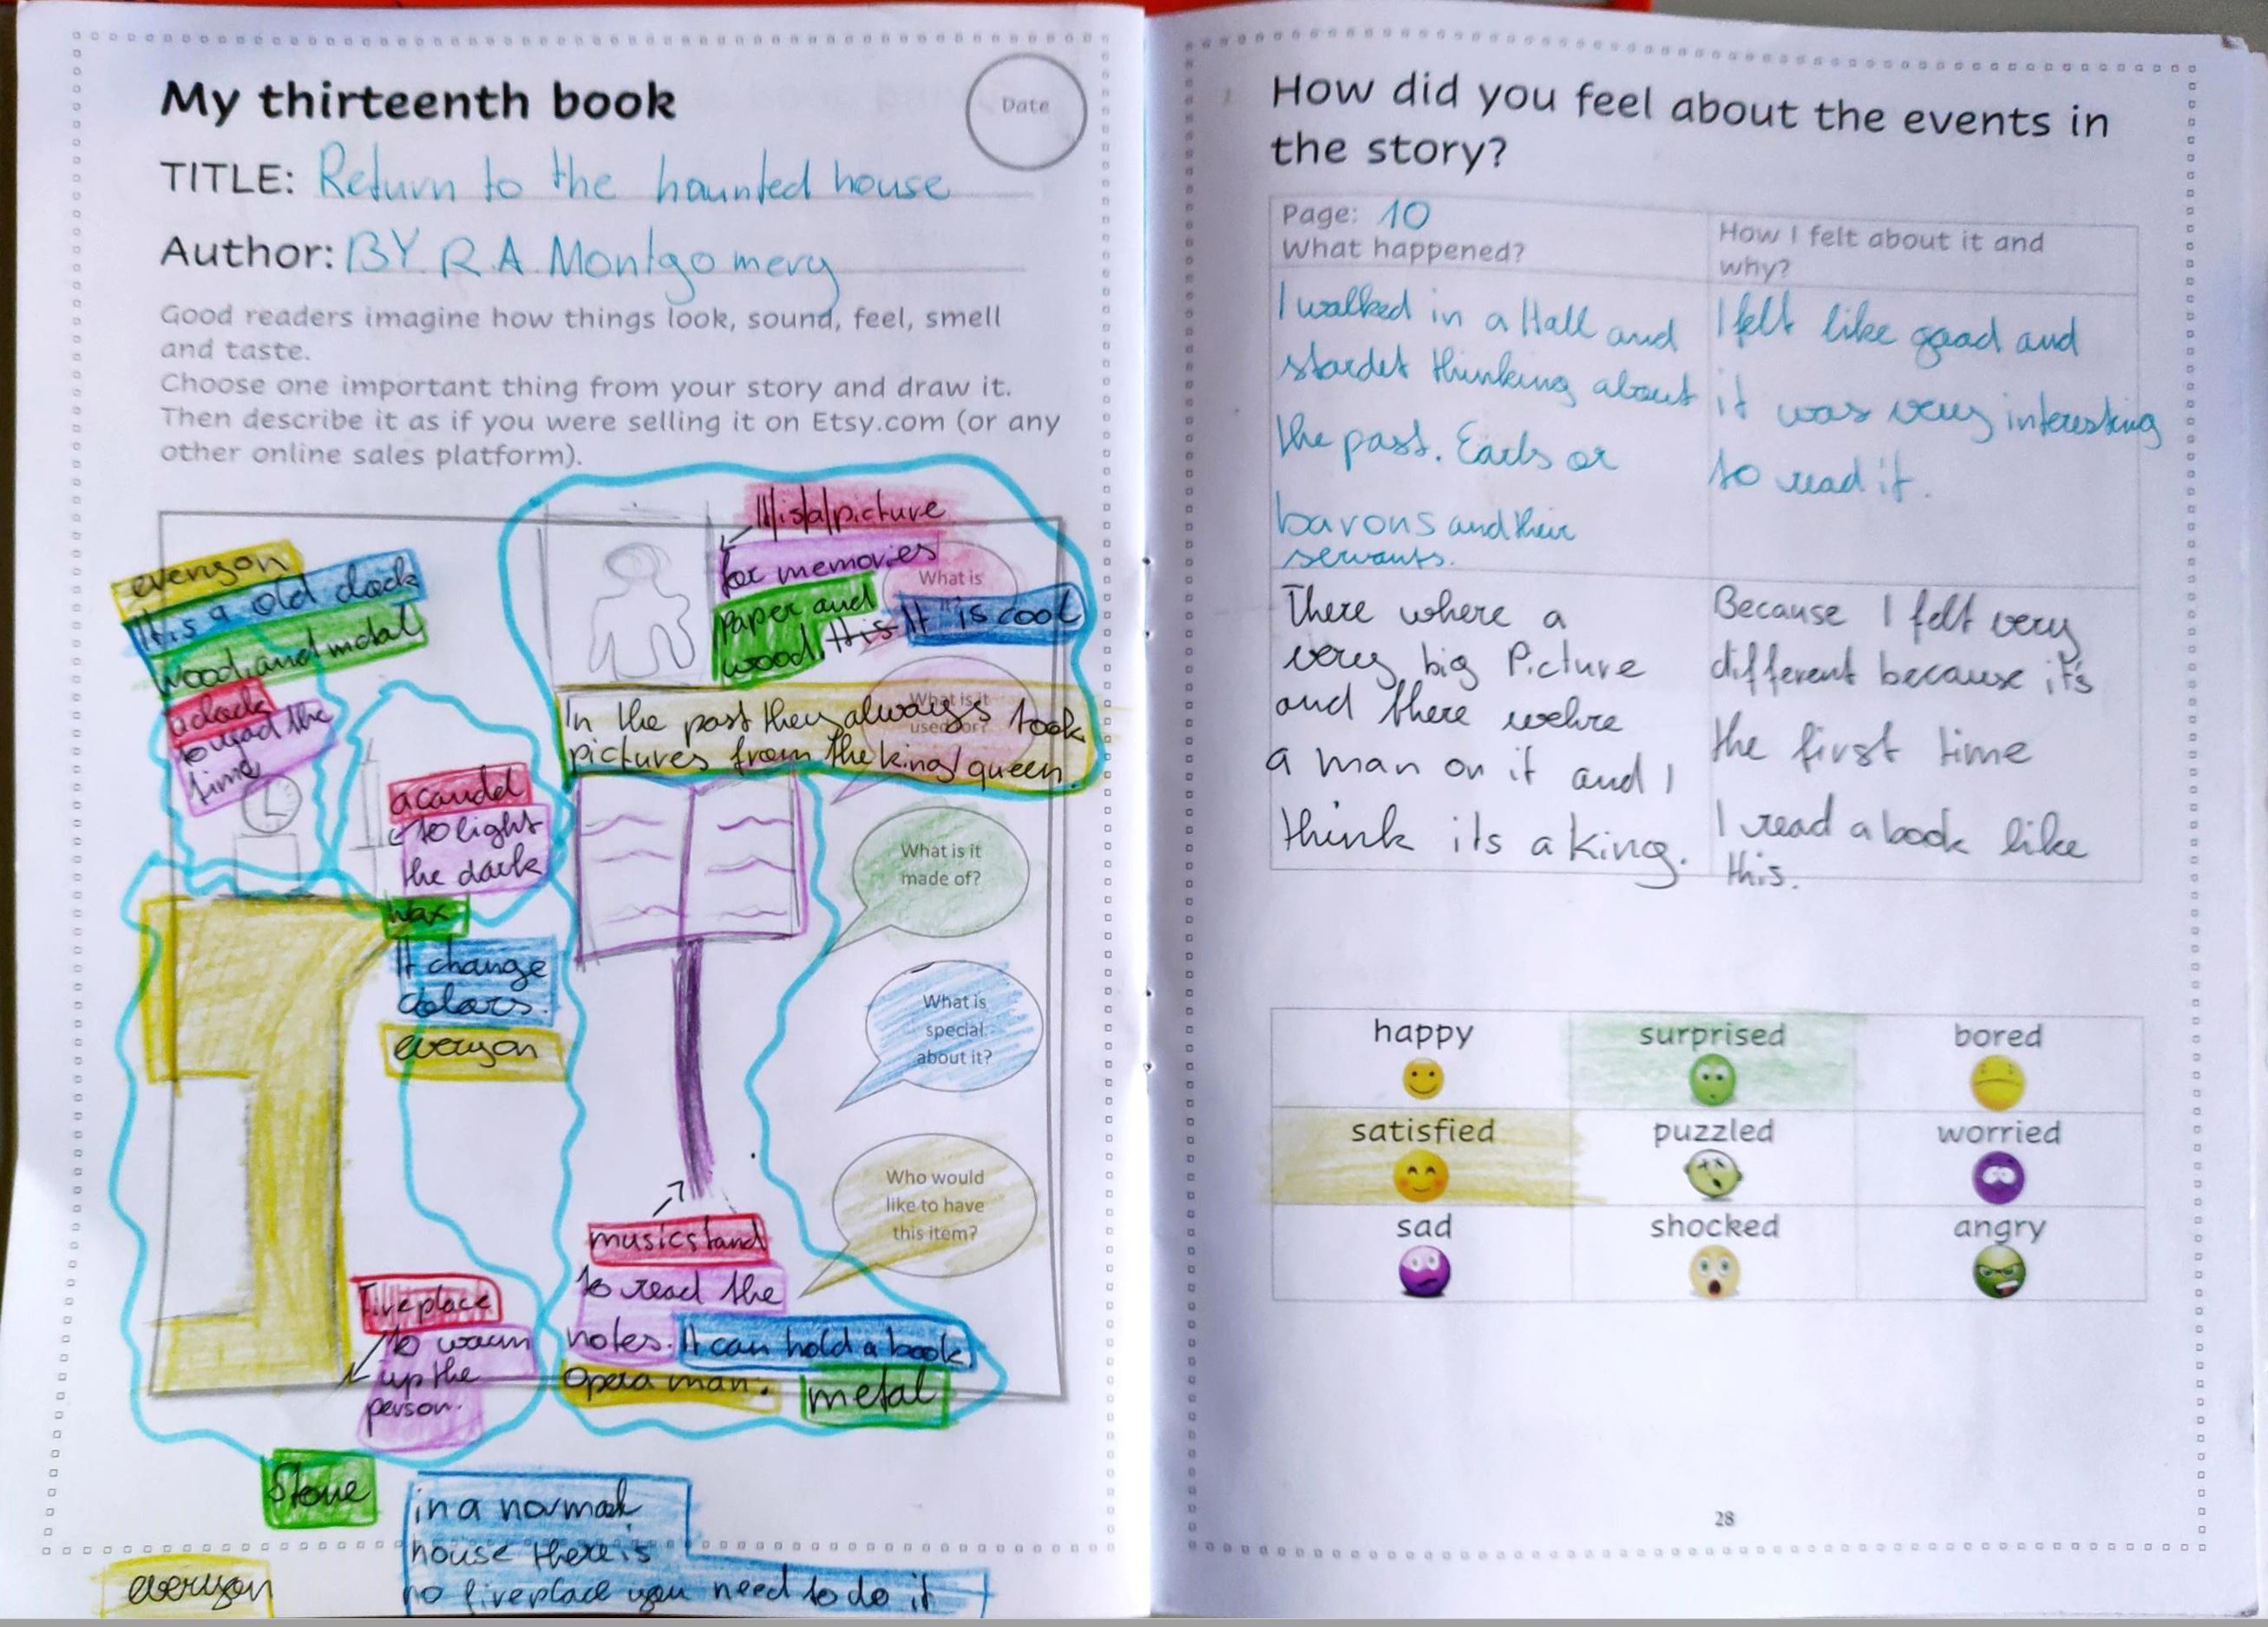 My thirteenth book
Date
TITLE: Return to the haunted house
Author: BY R.A. Montgomery
Good readers imagine how things look, sound, feel, smell
and taste.
Choose one important thing from your story and draw it.
Then describe it as if you were selling it on Etsy.com (or any
other online sales platform).
It is a picture
for memories
Paper and
wood. this It is cool
In the past they always took
pictures from the king/queen.
What is
it?
What is it
used for?
What is it
made of?
What is
special
about it?
Who would
like to have
this item?
everyon
It is a old clock
wood, and metal
a clock
to read the
time
a candel
to light
the dark
wax
It change
colors.
everyon
Fireplace
to warm
up the
person.
Stone
in a normal
house there is
no fireplace you need to do it
everyon
musicstand
to read the
notes. It can hold a book
Opera man.
metal
How did you feel about the events in
the story?
Page: 10
What happened?
How I felt about it and
why?
I walked in a Hall and
stardet thinking about
the past. Earls or
barons and their
servants.
I felt like good and
it was very interesting
to read it.
There where a
very big Picture
and there wehre
a man on it and I
think its a king.
Because I felt very
different because it's
the first time
I read a book like
this.
happy surprised bored
satisfied puzzled worried
sad shocked angry
28